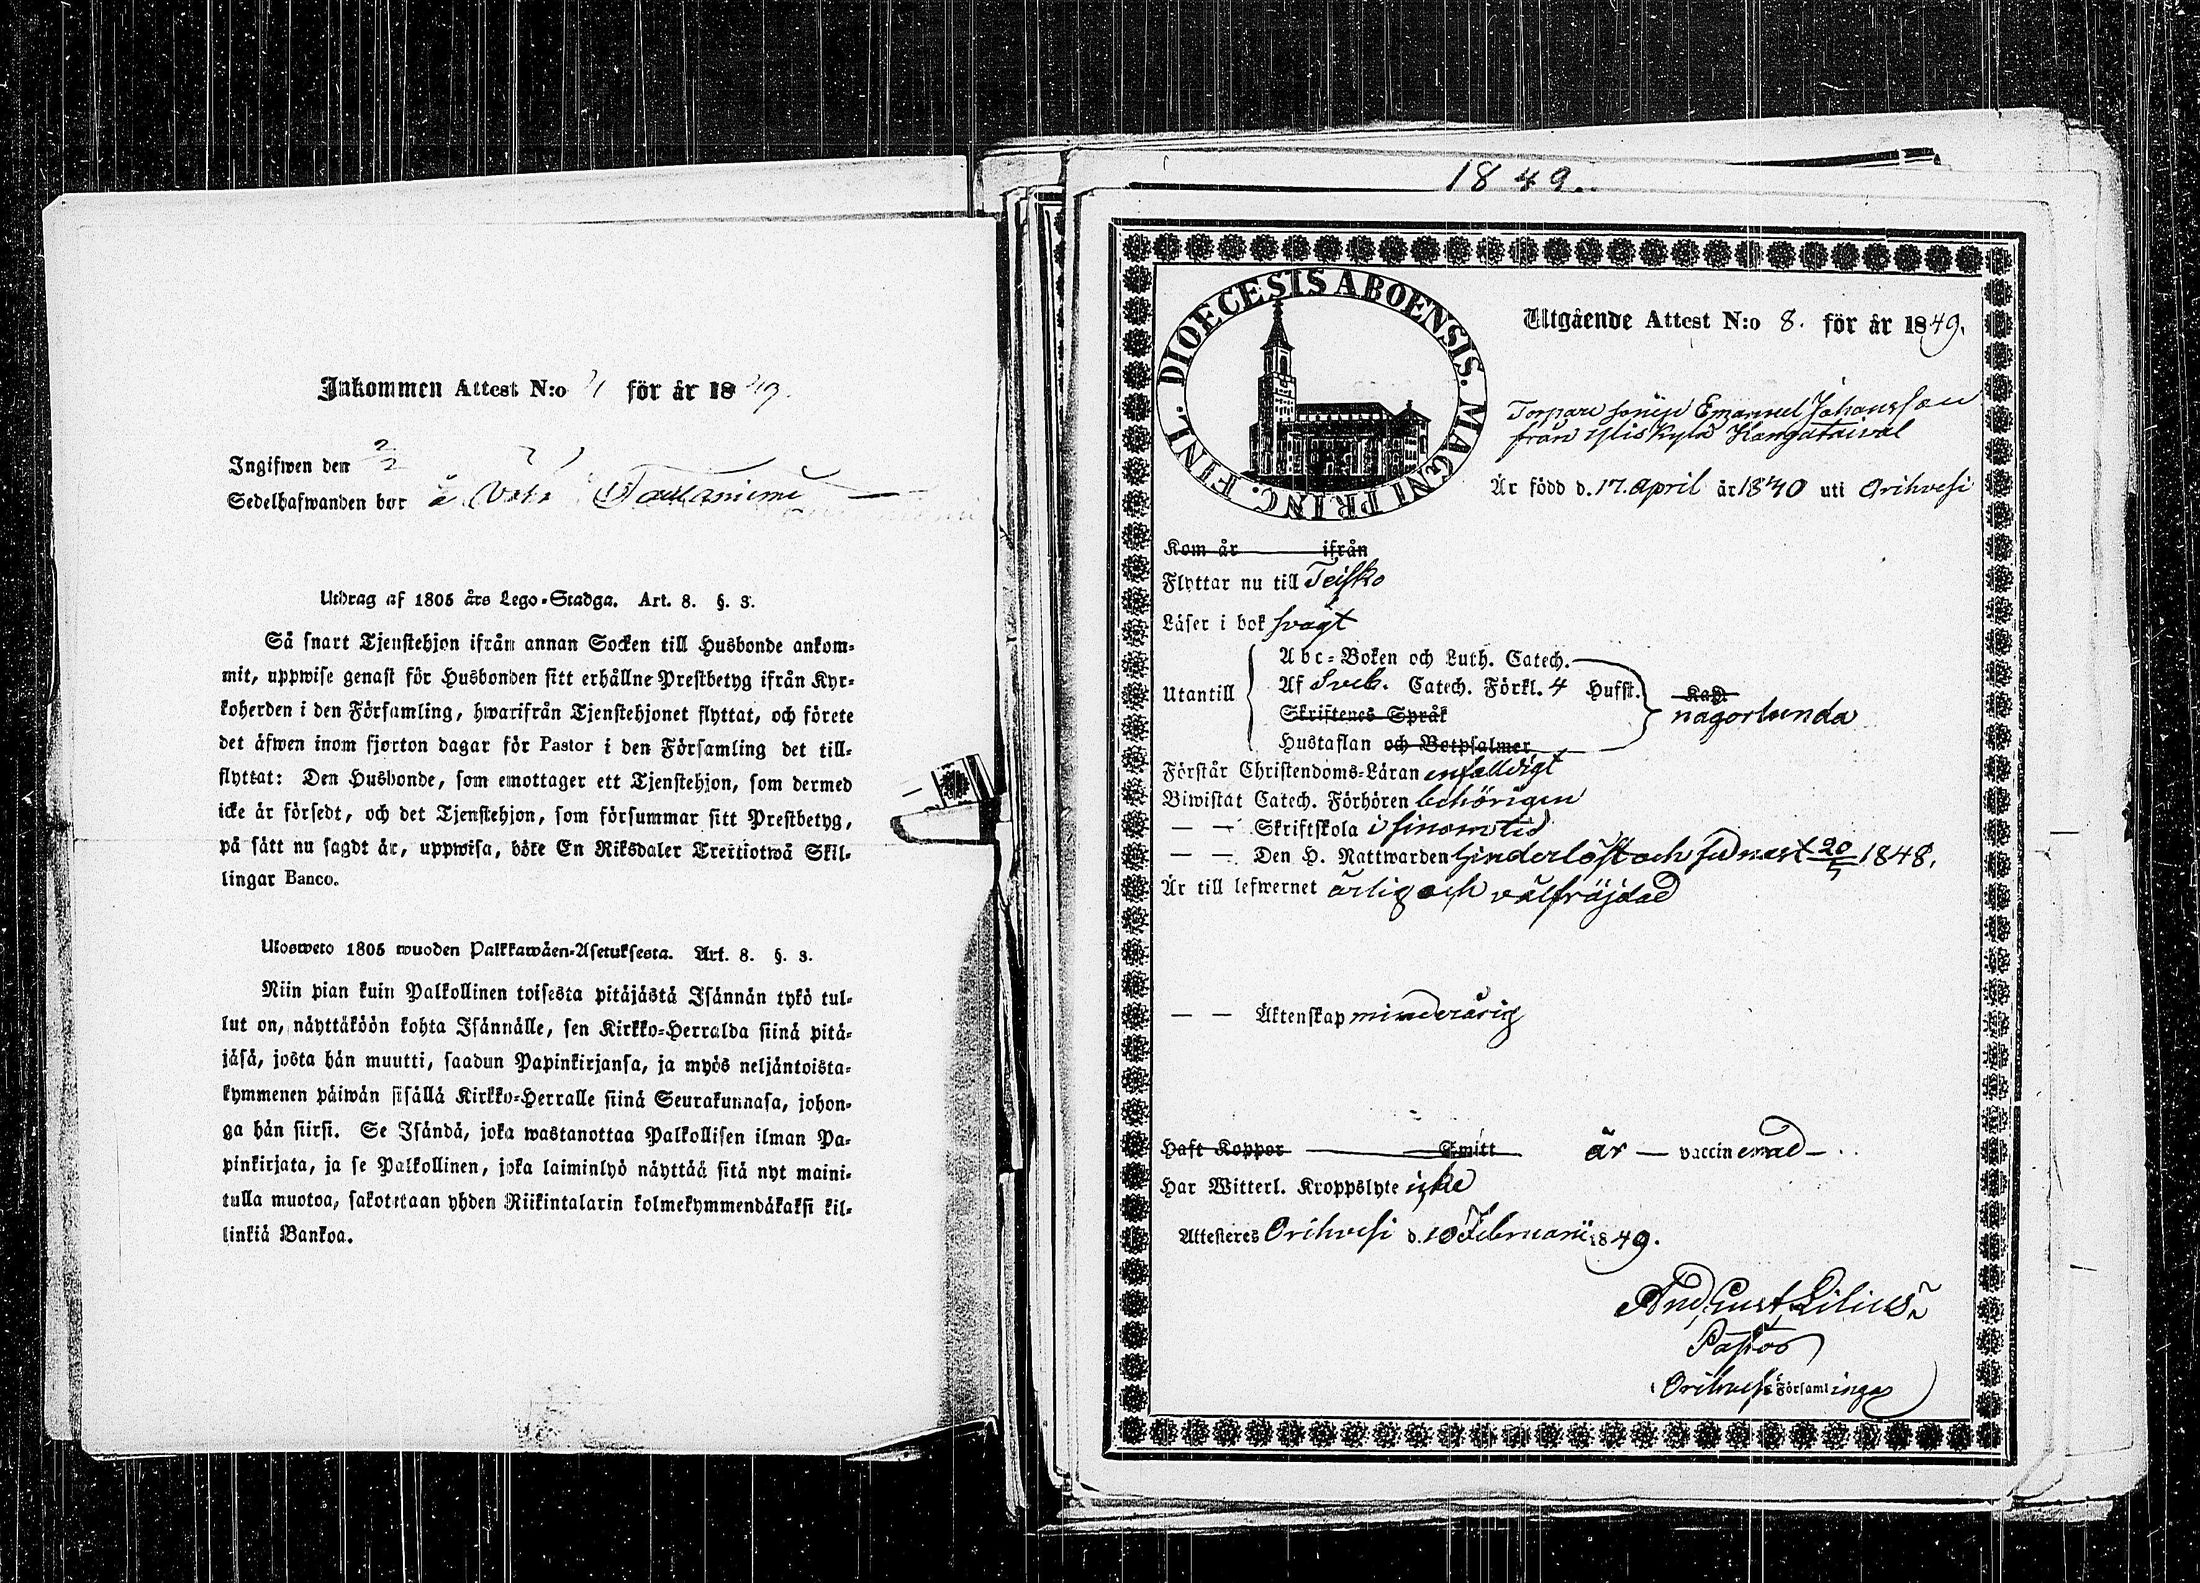 Inkommen Attest N:o 1 för år 1849.
Ingifwen den 2/2
Sedelhafwanden bor å
Utdrag af 1805 års Lego-Stadga. Art. 8. §. 3.
Så snart Tjenstehjon ifrån annan Socken till Husbonde ankom-
mit, uppwise genast för Husbonden sitt erhållne Prestbetyg ifrån Kyr-
koherden i den Församling, hwarifrån Tjenstehjonet flyttat, och förete
det äfwen inom fjorton dagar för Pastor i den Församling det till-
flyttat: Den Husbonde, som emottager ett Tjenstehjon, som dermed
icke är försedt, och det Tjenstehjon, som försummar sitt Prestbetyg,
på sätt nu sagdt är, uppwisa, böte En Riksdaler Trettiotwå Skil-
lingar Banco.
Ulosweto 1805 wuoden Palkkawäen-Asetuksesta. Art. 8. §. 3.
Niin pian kuin Palkollinen toisesta pitäjästä Isännän tykö tul-
lut on, näyttäköön kohta Isännälle, sen Kirkko-Herralda siinä pitä-
jäsä, josta hän muutti, saadun Papinkirjansa, ja myös neljäntoista-
kymmenen päiwän sisällä Kirkko-Herralle siinä Seurakunnasa, johon-
ga hän siirsi. Se Isändä, joka wastanottaa Palkollisen ilman Pa-
pinkirjata, ja se Palkollinen, joka laiminlyö näyttää sitä nyt maini-
tulla muotoa, sakotetaan yhden Riikintalarin kolmekymmendäkaksi kil-
linkiä Bankoa.
1849.
DIOECESIS ABOENSIS. MAGNI PRINC. FINL.
Utgående Attest N:o 8. för år 1849.
Torpare Emanuel Johansson
från Yliskylä Kangataival
Är född d. 17. April år 1840 uti Orihvesi
Kom år ifrån
Flyttar nu till Teisko
Läser i bok svagt
Utantill
Abc-Boken och Luth. Catech.
Af Sveb. Catech. Förkl. 4 Hufst.
Kap.
någorlunda
Skriftenes Språk
Hustaflan och Botpsalmer
Förstår Christendoms-Läran enfalldigt
Biwistat Catech. Förhören behörigen
— — Skriftskola i sinom tid
— — Den H. Nattwarden hinderlöst och sednast 20/5 1848.
Är till lefwernet ärlig och välfräjdad
— — Äktenskap minderårig
Haft Koppor Smitt är — vaccinerad — .
Har Witterl. Kroppslyte icke
Attesteres Orihvesi d. 10 Februarii 1849.
And. Gust. Lilius
Pastor
Orihvesi Församlingas